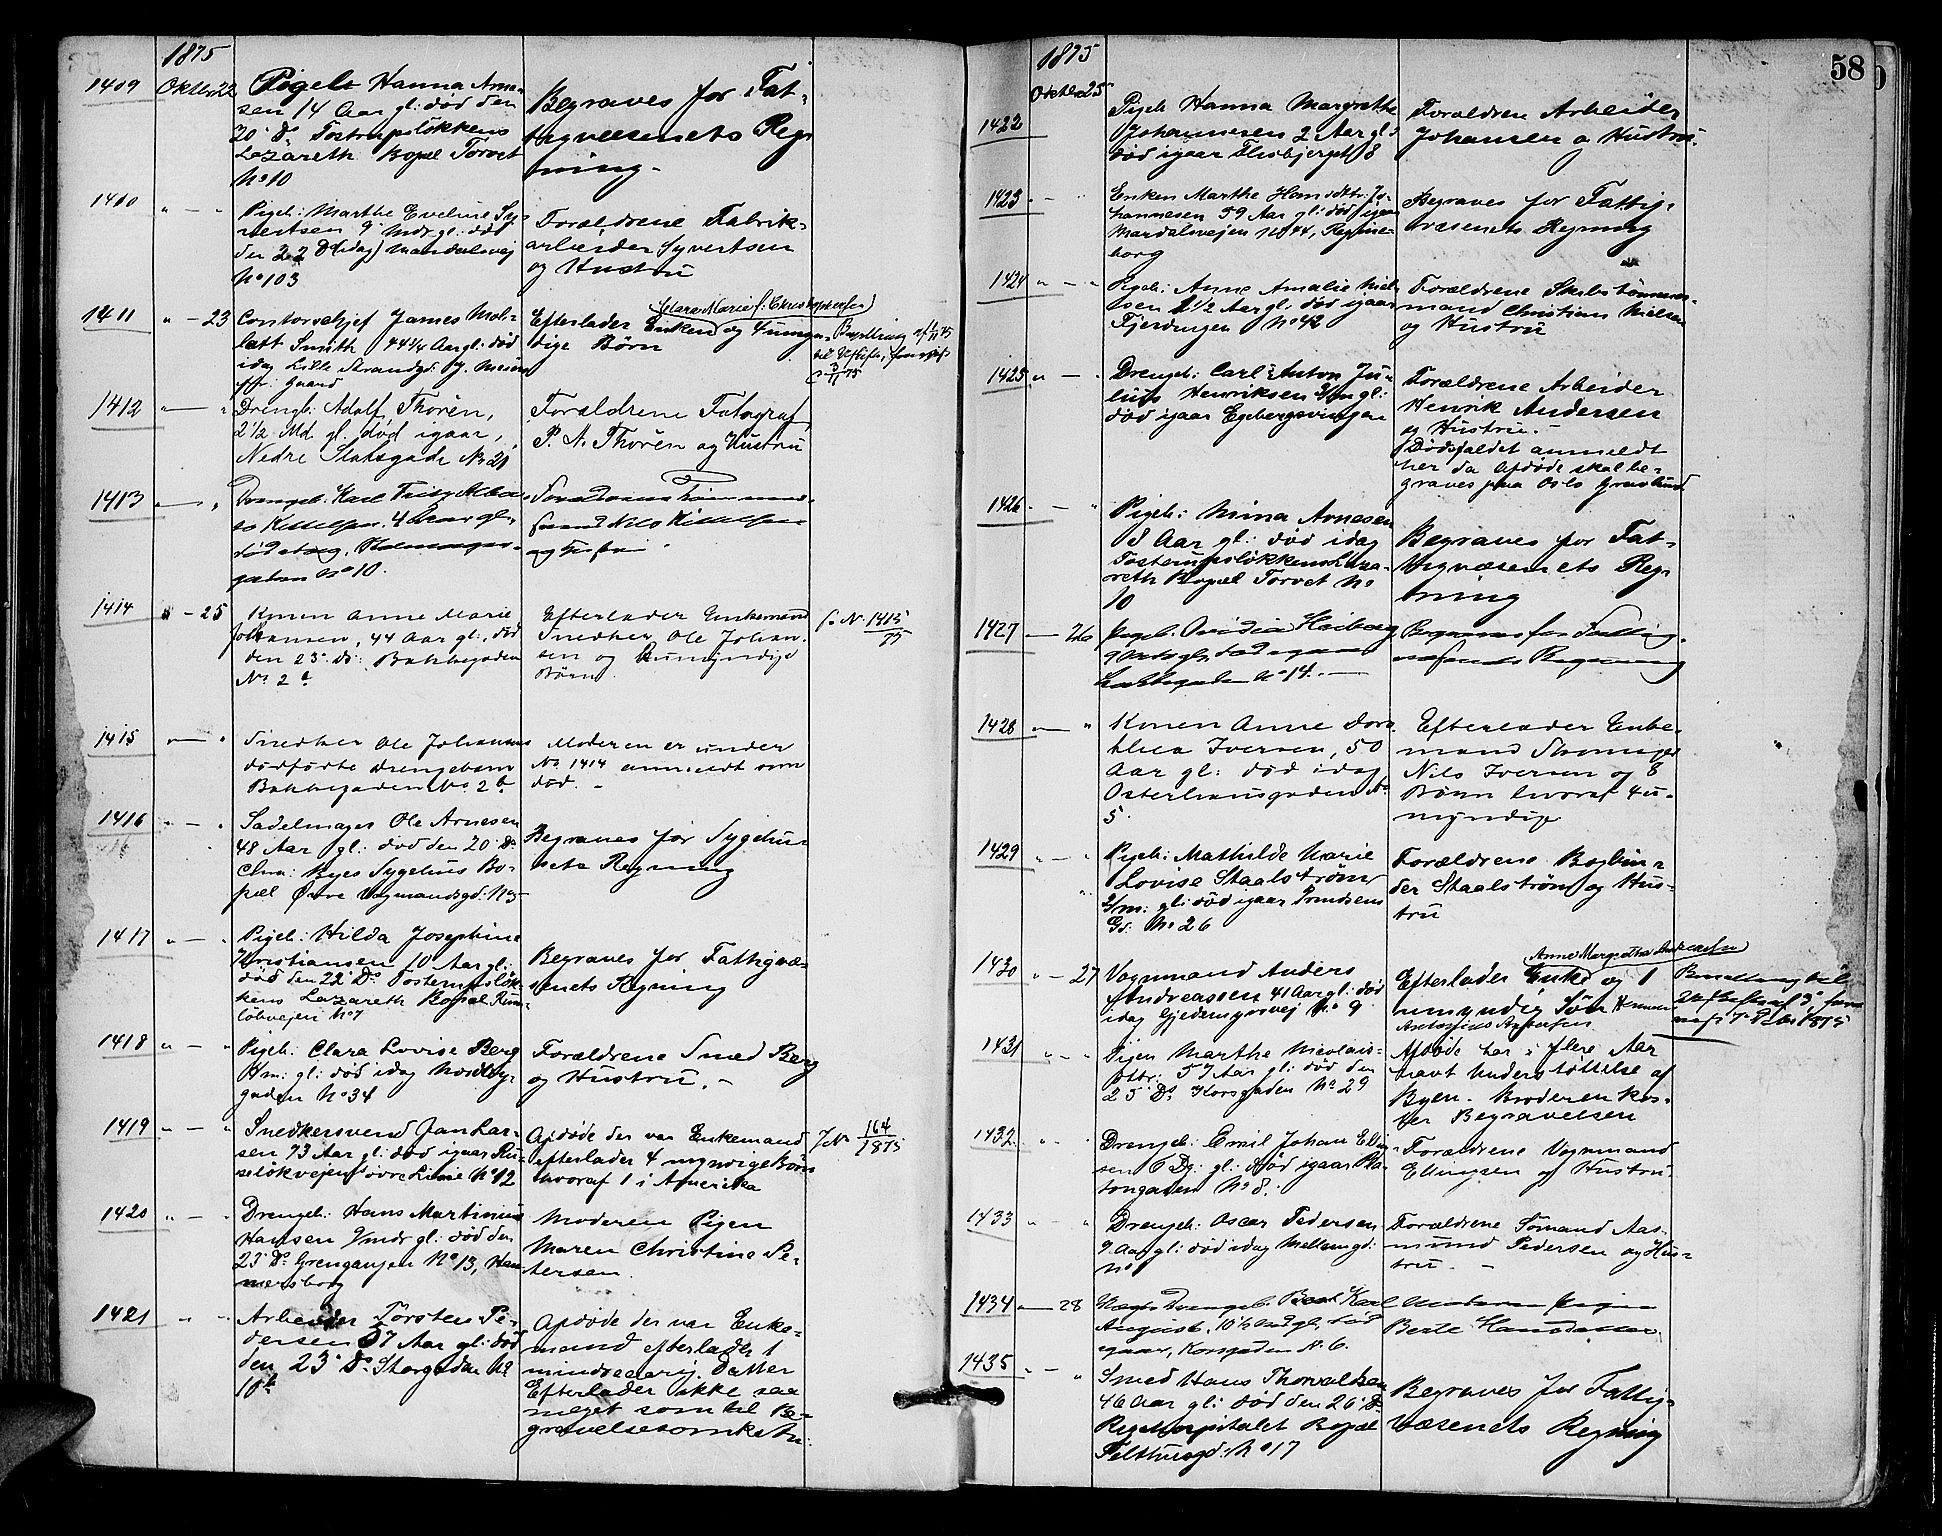 1875
1409 Oktbr 22 Pigeb: Hanna Arne-
sen 14 Aar gl: død den
20' Ds Tostrupsløkkens
Lazareth Bopæl Torvet
No 10
Begraves for Fat-
tigvæsenets Reg-
ning -
1410 " - " Pigeb: Marthe Eveline Sy-
vertsen 9 Mdr gl: død
den 22 Ds (idag) Maridalsvej
No 103
Forældrene Fabrik-
arbeider Syvertsen
og Hustru
1411 " - 23 Contorschef James Mol-
lett Smith 44 1/4 Aar gl: død
idag Lille Strandgd. J. Mein
gaard
(Clara Marie f. Christophersen)
Efterlader Enken og umyn-
dige Børn
Bevilling af
1412 - " Drengb: Adolf Thorén,
2 1/2 Md gl. død igaar,
Nedre Slotsgade No 21
Forældrene Fotograf
P. A. Thorén og Hustru
1413 - " Drengeb. Karl
Kittelsen. 4 Aar gl.
død idag,
gaden No 10.
Forældrene Tømmer-
mand Nils Kittelsen
og Hustru
1414 " - 25 Konen Anne Marie
Johansen, 44 Aar gl., død
den 23' ds: Bakkegaden
No 2 b
Efterlader Enkemand
Snedker Ole Johan-
sen og umyndige
Børn.
cfr N. 1415/75
1415 - " Snedker Ole Johansens
dødfødte Drengebarn
Bakkegaden No 2 b
Moderen er under
No 1414 anmeldt som
død. -
1416 " - " Sadelmager Ole Arnesen
48 Aar gl: død den 20' Ds
Chra: Byes Sygehus Bo-
pæl Øvre Vognmandsgd: No 5
Begraves for Sygehu-
sets Regning
1417 " - " Pigeb: Hilda Josephine
Kristiansen 10 Aar gl:
død den 22' Ds Tostrupsløk-
kens Lazareth Bopæl
løkvejen No 7
Begraves for Fattigvæ-
senets Regning
1418 " " Pigeb: Clara Lovise Berg
gl: død idag Nordby-
gaden No 34
Forældrene Smed Berg
og Hustru. -
1419 " - " Snedkersvend Jan Lar-
sen 73 Aar gl: død igaar Ru-
seløkvejens øvre Linie No 12
Afdøde der var Enkemand
efterlader 4 myndige Børn
hvoraf 1 i Amerika
JNo 164/1875
1420 " - " Drengeb: Hans Martinius
Hansen Mdr gl: død den
23' Ds Grengangen No 13, Ham
mersborg
Moderen Pigen
Maren Christine Pe-
tersen.
1421 " " Arbeider Torsten Pe-
dersen 57 Aar gl: død
den 23' Ds Storgaden No
10 b
Afdøde der var Enke-
mand efterlader 1
mindreaarig Datter
Efterlader ikke saa
meget som til Be-
gravelsesomkostn:
58
1875
1422 Oktbr 25 Pigeb: Hanna Margrethe
Johannesen 2 Aar gl:
død igaar Flisbjerget 8
Forældrene Arbeider
Johansen og Hustru.
1423 " - " Enken Marthe Hansdttr: Jo-
hannesen 59 Aar gl: død igaar
Maridalsvejen No 44, Regine-
borg
Begraves for Fattig-
væsenets Regning
1424 " - " Pigeb: Anne Amalie Niel-
sen 1 1/2 Aar gl: død igaar
Fjerdingen No 42
Forældrene Skibstømmer-
mand Christian Nielsen
og Hustru
1425 " - " Drengeb: Carl Anton Ju-
lius Henriksen gl:
død igaar Egebergsvingen
Forældrene Arbeider
Henrik Andersen
og Hustru. -
Dødsfaldet anmeldt
her da Afdøde skal be-
graves paa Oslo Gravlund
1426 - " Pigeb: Mina Arnesen
8 Aar gl: død idag
Tostrupsløkkens Laza-
reth Bopæl Torvet No
10
Begraves for Fat-
tigvæsenets Reg-
ning
1427 - 26 Pigeb. Ovidia Heiberg
9 Mdr gl, død igaar
No 14. -
Begraves for Fattig-
væsenets Regning
1428 - " Konen Anne Doro
thea Iversen, 50
Aar gl: død idag,
Osterhausgaden No
5.
Efterlader Enke-
mand
Nils Iversen og 8
Børn hvoraf 4 u-
myndige
1429 " - " Pigeb: Mathilde Marie
Lovise Staalstrøm
gl: død igaar Trondsens
Gd: No 26
Forældrene Bogbin-
der Staalstrøm og Hus-
tru
1430 " - 27 Vognmand Anders
Andreassen 41 Aar gl: død
idag Gjedemyrsvej No 9
Anne Margrethe Andreasen
Efterlader Enke og 1
umyndig Søn
Bevilling til
1431 " - " Pigen Marthe Nicolais-
dttr: 57 Aar gl: død den
25' Ds Korsgaden No 29
Afdøde har i flere Aar
havt Understøttelse af
Byen. Broderen kos-
ter Begravelsen
1432 " " Drengeb: Emil Johan Elling-
sen 6 Dg: gl: død igaar Pla-
tousgaden No 8.
Forældrene Vognmand
Ellingsen og Hustru.
1433 " " Drengeb: Oscar Pedersen
9 Aar gl: død idag Mellemgd:
No
Forældrene Sømand Aas-
mund Pedersen og Hus-
tru. -
1434 - 28 Drengeb. Karl
August, 10 1/2 Md gl, død
igaar, Korsgaden N. 6.
Moderen Pigen
Berte Hansdatter.
1435 " - " Smed Hans Thorvaldsen
46 Aar gl: død den 26' Ds
Rigshospitalet Bopæl
Telthusgd: No 17
Begraves for Fattig-
væsenets Regning